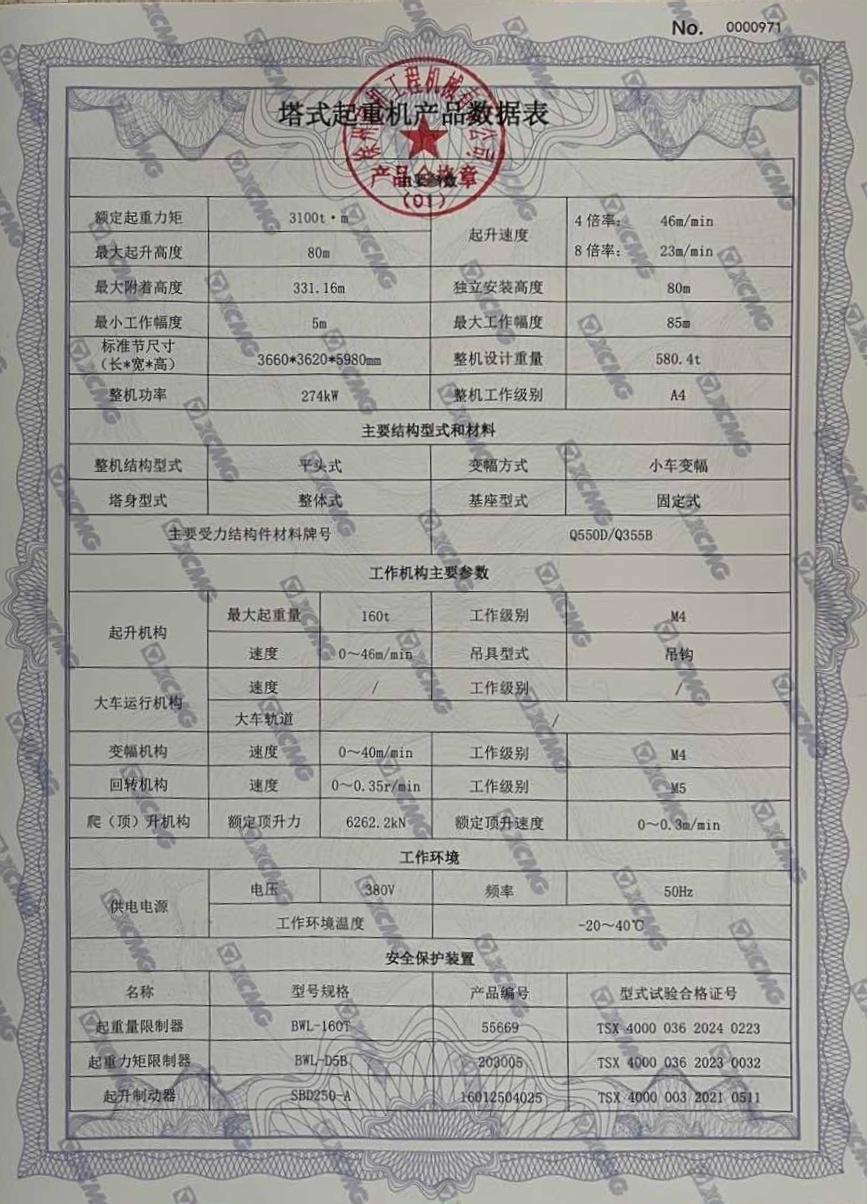 No. 0000971
塔式起重机产品数据表
产品合格章
(01)
额定起重力矩 3100t·m 起升速度 4 倍率： 46m/min
8 倍率： 23m/min
最大起升高度 80m
最大附着高度 331.16m 独立安装高度 80m
最小工作幅度 5m 最大工作幅度 85m
标准节尺寸
（长*宽*高） 3660*3620*5980mm 整机设计重量 580.4t
整机功率 274kW 整机工作级别 A4
主要结构型式和材料
整机结构型式 平头式 变幅方式 小车变幅
塔身型式 整体式 基座型式 固定式
主要受力结构件材料牌号 Q550D/Q355B
工作机构主要参数
起升机构 最大起重量 160t 工作级别 M4
速度 0～46m/min 吊具型式 吊钩
大车运行机构 速度 / 工作级别 /
大车轨道 /
变幅机构 速度 0～40m/min 工作级别 M4
回转机构 速度 0～0.35r/min 工作级别 M5
爬（顶）升机构 额定顶升力 6262.2kN 额定顶升速度 0～0.3m/min
工作环境
供电电源 电压 380V 频率 50Hz
工作环境温度 -20～40℃
安全保护装置
名称 型号规格 产品编号 型式试验合格证号
起重量限制器 BWL-160T 55669 TSX 4000 036 2024 0223
起重力矩限制器 BWL-D5B 203005 TSX 4000 036 2023 0032
起升制动器 SBD250-A 16012504025 TSX 4000 003 2021 0511
XCMG